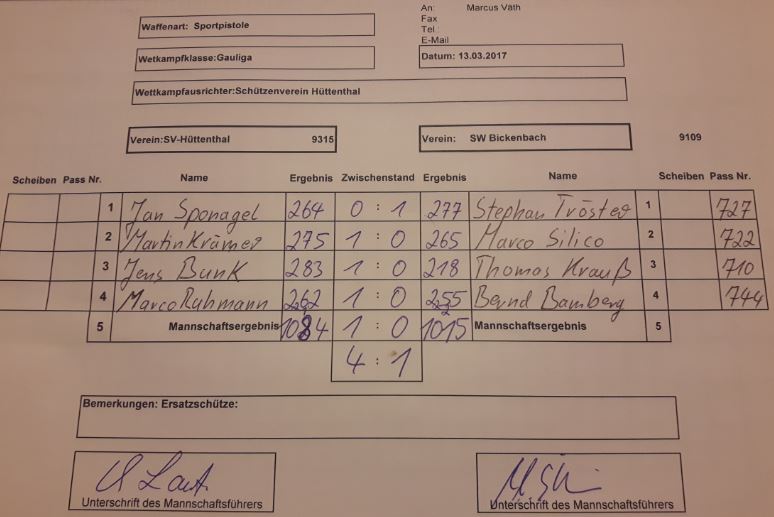 An: Marcus Väth
Fax
Tel.:
E-Mail
Waffenart: Sportpistole
Wetkampfklasse:Gauliga
Datum: 13.03.2017
Wettkampfausrichter:Schützenverein Hüttenthal
Verein:SV-Hüttenthal 9315 Verein: SW Bickenbach 9109
Scheiben Pass Nr. Name Ergebnis Zwischenstand Ergebnis Name Scheiben Pass Nr.
1 Jan Sponagel 264 0 : 1 277 Stephan Tröster 1 727
2 Martin Krämer 275 1 : 0 265 Marco Silico 2 722
3 Jens Bunk 283 1 : 0 218 Thomas Krauß 3 710
4 Marco Ruhmann 262 1 : 0 255 Bernd Bamberg 4 744
5 Mannschaftsergebnis 1084 1 : 0 1015 Mannschaftsergebnis 5
4 : 1
Bemerkungen: Ersatzschütze:
Unterschrift des Mannschaftsführers Unterschrift des Mannschaftsführers